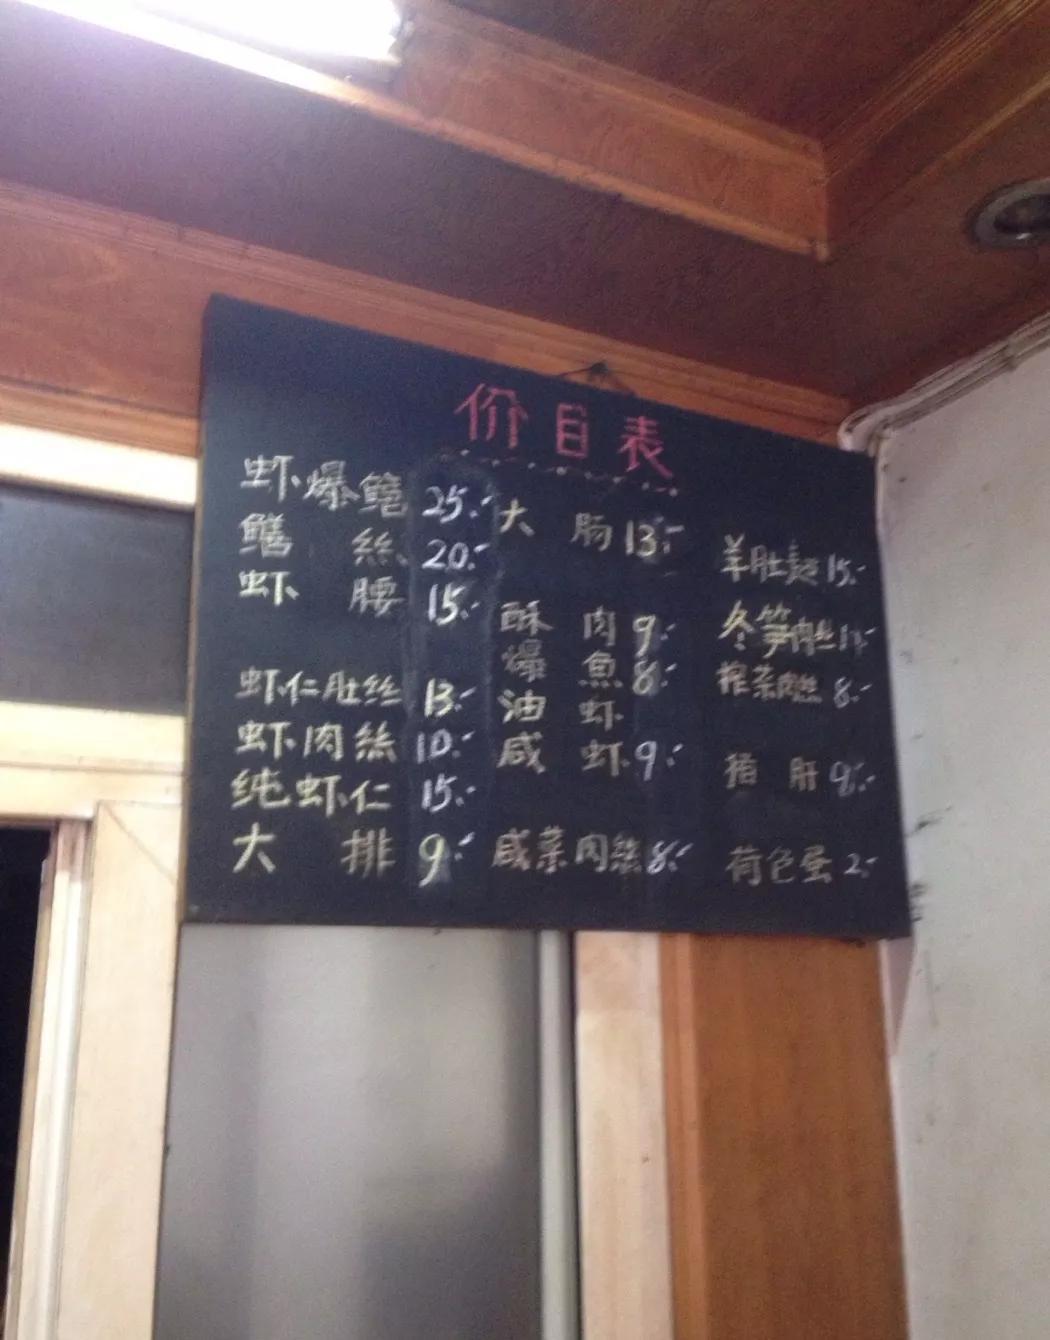 价目表
虾爆鳝 25.-
鳝絲 20.-
虾腰 15.-
虾仁肚丝 13.-
虾肉絲 10.-
纯虾仁 15.-
大排 9.-
大肠 13.-
酥肉 9.-
爆魚 8.-
油虾
咸虾 9.-
咸菜肉絲 8.-
羊肚麺 15.-
冬笋肉丝
榨菜肉丝 8.-
猪肝 9.-
荷包蛋 2.-